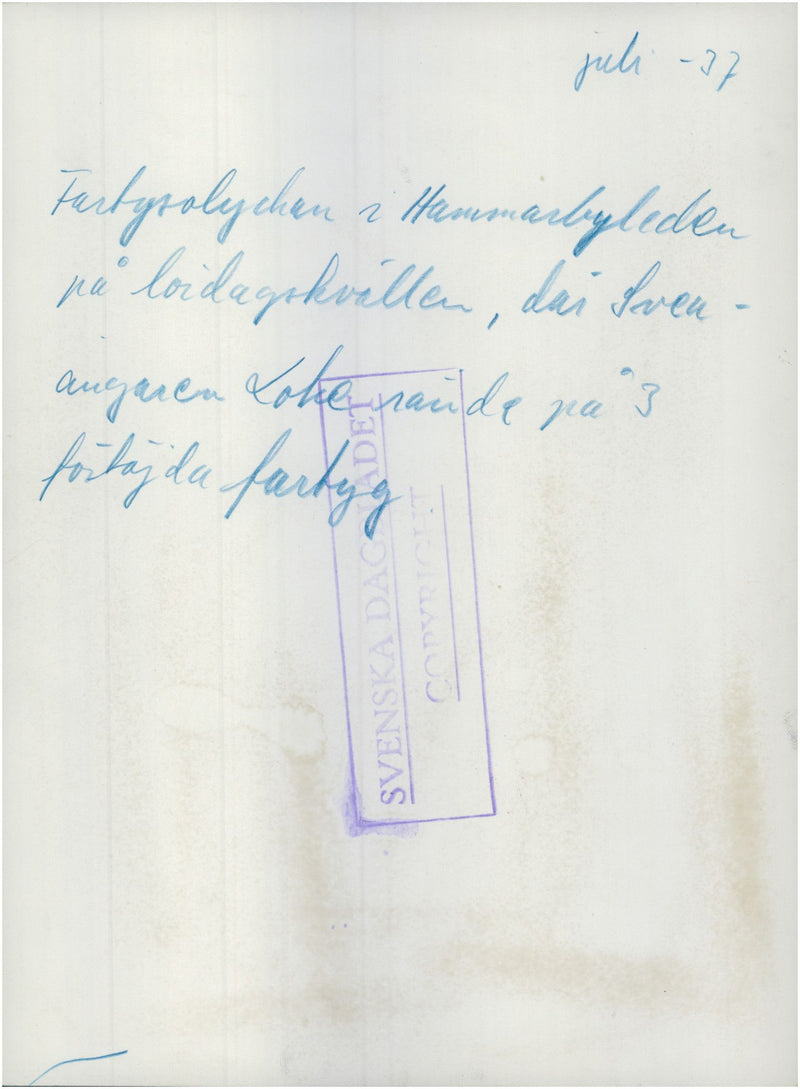 juli -37
Fartygsolyckan i Hammarbyleden
på lördagskvällen, där Svea-
ångaren Loke rände på 3
förtöjda fartyg
SVENSKA DAGBLADET
COPYRIGHT